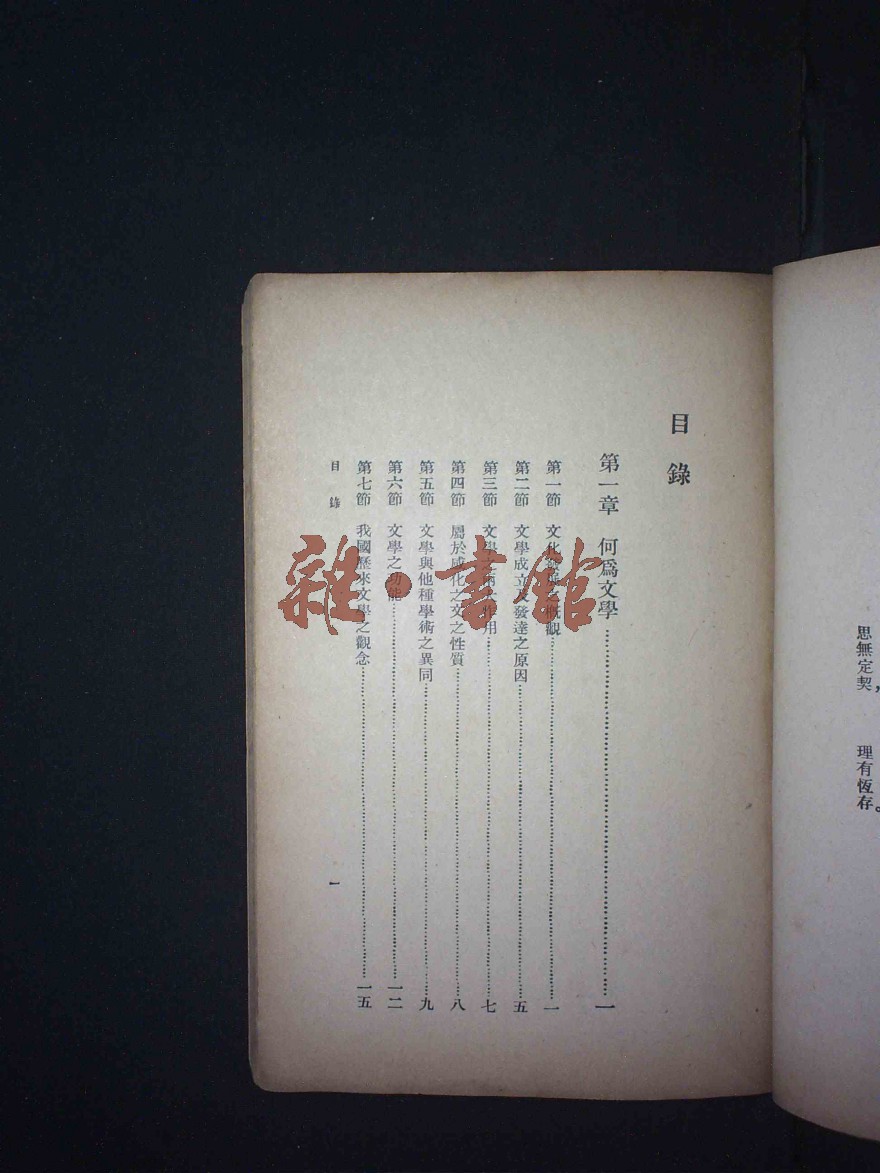 思無定契，
理有恆存。
目錄
第一章 何爲文學……一
第一節 文化發展之概觀……一
第二節 文學成立及發達之原因……五
第三節 文學 術 作用……七
第四節 屬於感化之文之性質……八
第五節 文學與他種學術之異同……九
第六節 文學之功能……一二
第七節 我國歷來文學之觀念……一五
目錄
一
雜·書館